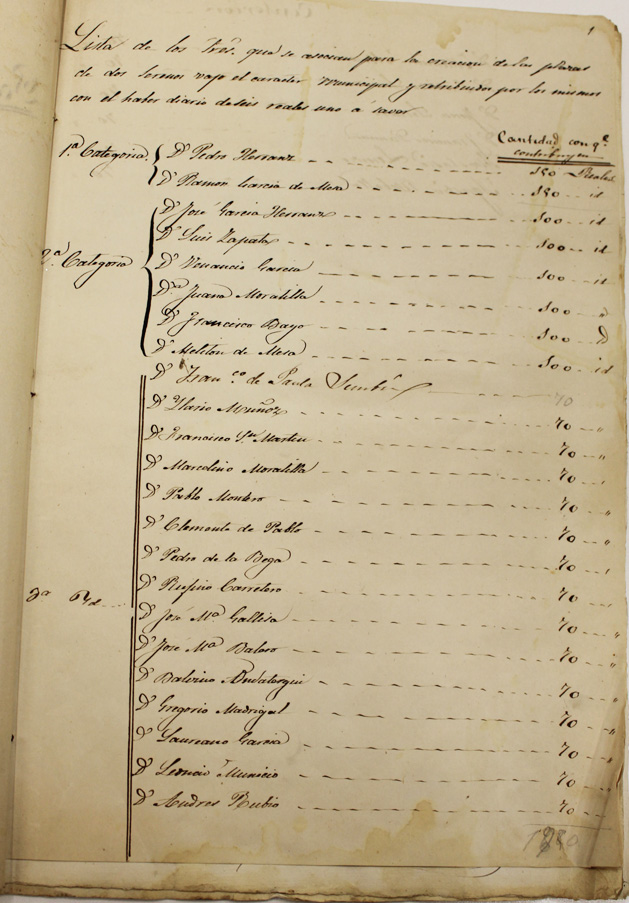 1
Lista de los Sres. que se asocian para la creacion de las plazas
de dos serenos vajo el caracter municipal y retribuidos por los mismos
con el haber diario de seis reales uno á savor
Cantidad con qe.
contribuyen
1ª. Categoria. Dn. Pedro Herranz 150 Reales
Dn. Ramon Garcia de Mesa 150 id
Dn. José Garcia Herranz 100 id
Dn. Luis Zapata 100 id
2ª. Categoria Dn. Venancio Garcia 100 id
Dña. Juana Moratilla 100 "
Dn. Francisco Bayo 100 id
Dn. Meliton de Mesa 100 id
Dn. Franco. de Paula 70
Dn. Ylario Muñoz 70 "
Dn. Francisco Sn. Martin 70 "
Dn. Marcelino Moratilla 70 "
Dn. Pablo Montero 70 "
Dn. Clemente de Pablo 70 "
Dn. Pedro de la Bega 70 "
3ª Dn. Rufino Carretero 70 "
Dn. José Mª Gallisa 70 "
Dn. José Mª Balero 70 "
Dn. Balvino 70 "
Dn. Gregorio Madrigal 70 "
Dn. Laureano Garcia 70 "
Dn. Leoncio Municio 70 "
Dn. Andres Rubio 70 "